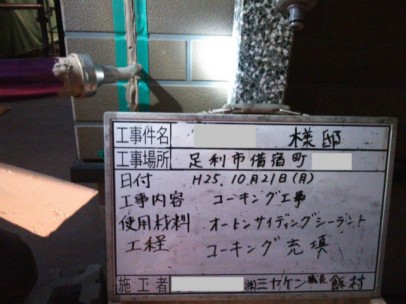 工事件名 様邸
工事場所 足利市借宿町
日付 H25.10月21日(月)
工事内容 コーキング工事
使用材料 オートンサイディングシーラント
工程 コーキング充填
施工者 ㈱ミヤケン 職長 飯村